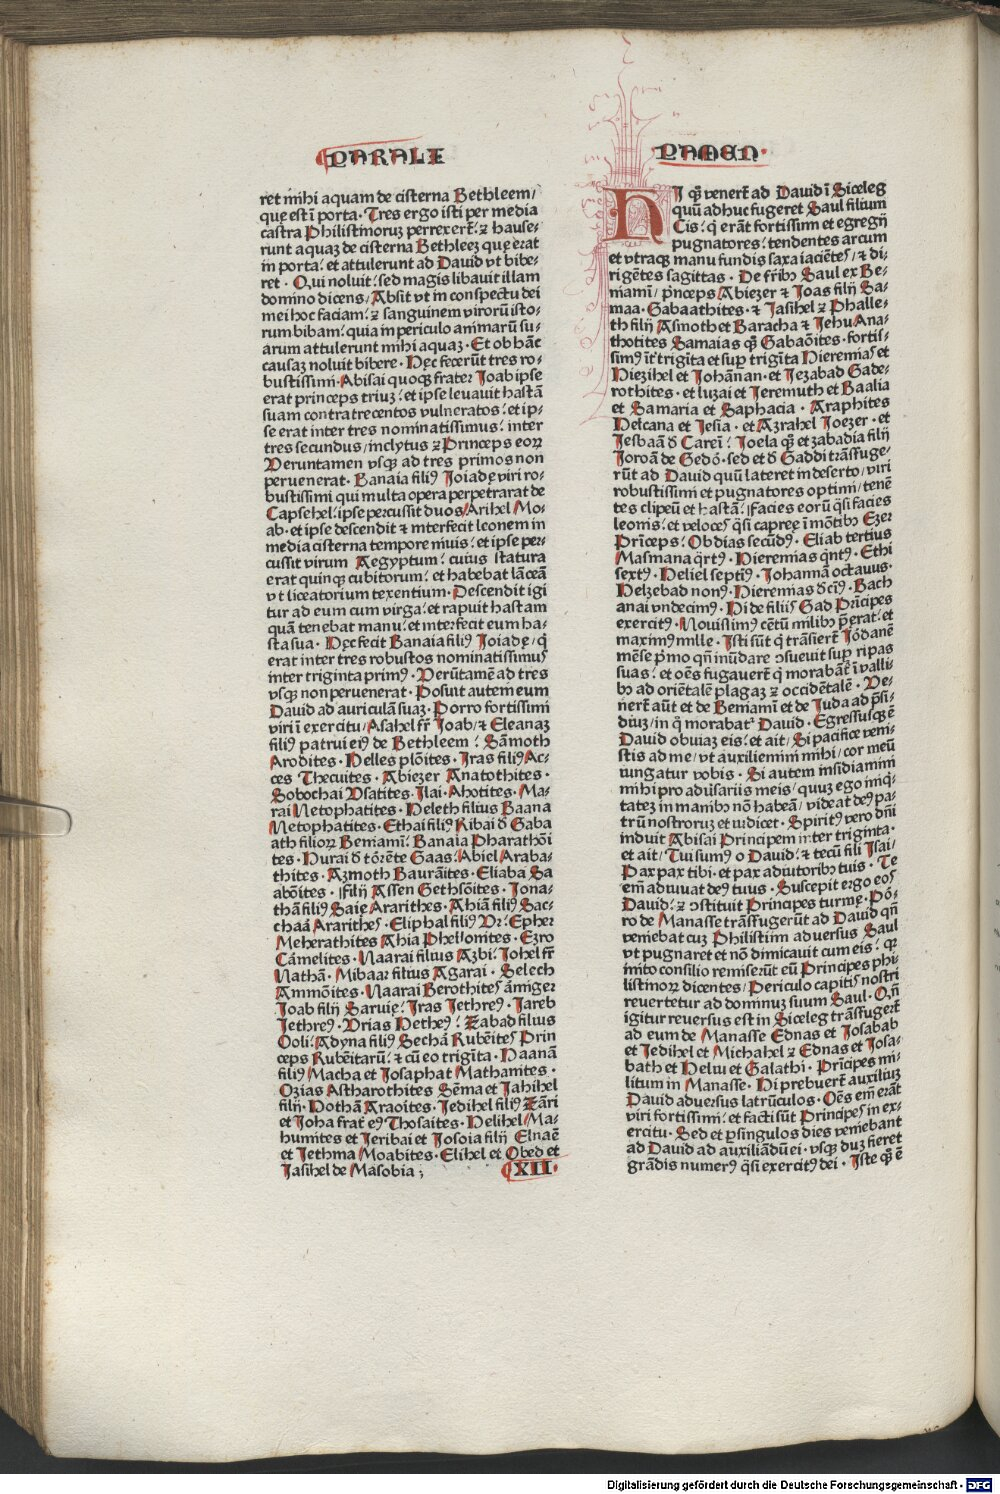 PARALI
PAMEN·
ret mihi aquam de cisterna Bethleem/
quę est ī porta· Tres ergo isti per media
castra Philistinoruꝫ perrexerēt: ⁊ hause-
runt aquaꝫ de cisterna Bethleeꝫ quę erat
in porta: et attulerunt ad David vt bibe-
ret· Qui noluit: sed magis libauit illam
domino dicens/ Absit vt in conspectu dei
mei hoc faciam: ⁊ sanguinem virorū isto-
rum bibam: quia in periculo animarū su-
arum attulerunt mihi aquaꝫ· Et ob hāc
causaꝫ noluit bibere· Hęc fecerūt tres ro-
bustissimi· Abisai quoqꝫ frater Joab ipse
erat princeps triuꝫ: et ipse leuauit hastā
suam contra trecentos vulneratos: et ip-
se erat inter tres nominatissimus: inter
tres secundus/ inclytus ⁊ Princeps eoꝝ
Veruntamen vsqꝫ ad tres primos non
peruenerat· Banaia filiꝯ Joiadę viri ro-
bustissimi qui multa opera perpetrarat de
Capsehel: ipse percussit duos/ Arihel Mo-
ab· et ipse descendit ⁊ interfecit leonem in
media cisterna tempore niuis: et ipse per-
cussit virum Aegyptum: cuius statura
erat quinqꝫ cubitorum: et habebat lāceā
vt liceatorium texentium· Descendit igi
tur ad eum cum virga: et rapuit hastam
quā tenebat manu: et interfecit eum ha-
sta sua· Hęc fecit Banaia filiꝯ Joiadę/ q̄
erat inter tres robustos nominatissimus
inter triginta primꝯ· Verūtamē ad tres
vsqꝫ non peruenerat· Posuit autem eum
David ad auriculā suaꝫ· Porro fortissimi
viri ī exercitu/ Asahel fr̄ Joab/ ⁊ Eleanaꝫ
filiꝯ patrui eiꝯ de Bethleem: Sāmoth
Arodites· Helles plōites· Iras filiꝯ Ac-
ces Thecuites· Abiezer Anatothites·
Sobochai Vsatites· Ilai· Ahotites· Ma-
rai Netophatites· Heleth filius Baana
Netophatites· Ethai filiꝯ Ribai đ Gaba
ath filioꝝ Beniami: Banaia Pharathōi
tes· Hurai đ tōrēte Gaas· Abiel Araba-
thites· Azmoth Baurāites· Eliaba Sa
abōites· filij Assen Gethsōites· Jona-
thā filiꝯ Saię Ararithes· Ahiā filiꝯ Sac-
chaā Ararithes· Eliphal filiꝯ Vr: Epher
Meherathites Ahia Phellonites· Ezro
Cāmelites· Naarai filius Azbi: Johel fr̄
Nathā· Mibaar filius Agarai· Selech
Ammōites· Naarai Berothites āmiger
Joab filij Saruię: Iras Jethreꝯ· Jareb
Jethreꝯ· Vrias Hetheꝯ: Zabad filius
Ooli: Adyna filiꝯ Sechā Rubēites Prin
ceps Rubēitarū: ⁊ cū eo trigīta· Haanā
filiꝯ Macha et Josaphat Mathanites·
Ozias Astharothites Sēma et Jahihel
filij· Hothā Araoites· Jedihel filiꝯ Zāri
et Joha frat̄ eiꝯ Thosaites· Helihel/ Ma-
humites et Jeribai et Josoia filij Elnaē
et Jethma Moabites· Elihel et Obed et
Jasihel de Masobia;
XII·
HI qꝫ̄ venerēt ad David ī Siceleg
quū adhuc fugeret Saul filium
Cis: q̄ erāt fortissimi et egregij
pugnatores: tendentes arcum
et vtraqꝫ manu fundis saxa iaciētes/ ⁊ di-
rigētes sagittas· De fr̄ibꝯ Saul ex Be-
niami/ pr̄nceps Abiezer ⁊ Joas filij Sa-
maa· Gabaathites· ⁊ Jasihel ⁊ Phalle-
th filij Asmoth et Baracha ⁊ Jehu Ana-
thotites Samaias qꝫ̄ Gabaōites· fortis-
simꝯ īt̄ trigīta et suꝑ trigīta Hieremias et
Hiezihel et Johānan· et Jezabad Gade-
rothites· et luzai et Jeremuth et Baalia
et Samaria et Saphacia· Araphites
Helcana et Jesia· et Azrahel Joezer· et
Jesbaā đ Careī: Joela qꝫ̄ et zabadia filij
Joroā de Gedō· sed et đ Gaddi trāsfuge-
rūt ad David quū lateret in deserto/ viri
robustissimi et pugnatores optimi/ tenē
tes clipeū et hastā: Facies eorū q̄si facies
leonis: et veloces q̄si capreę ī mōtibꝯ Ezer
Prīceps: Obdias secūdꝯ· Eliab tertius
Masmana q̄rtꝯ· Hieremias q̄ntꝯ· Ethi
sextꝯ· Heliel septīꝯ· Johannā octauus·
Helzebad nonꝯ· Hieremias đcīꝯ· Bach
anai vndecimꝯ· Hi de filiis Gad Prīcipes
exercitꝯ· Nouissimꝯ cētū milibꝯ p̄erat: et
maximꝯ mille· Isti sūt q̄ trāsierēt Jōdanē
mēse p̄mo qn̄ inūdare ɔsueuit suꝑ ripas
suas: et oēs fugauerēt q̄ morabāt̄ ī valli
bꝯ ad oriētalē plagaꝫ ⁊ occidētalē· Ve-
nerēt aūt et de Beniami et de Juda ad p̄si-
diuꝫ/ in q̄ morabat᷑ David· Egressusqꝫ ē
David obuiaꝫ eis: et ait/ Si pacifice veni-
stis ad me/ vt auxiliemini mihi/ cor meū
iungatur vobis· Si autem insidiamini
mihi pro aduersariis meis/ quuꝫ ego iniq̄-
tateꝫ in manibꝯ nō habeā/ videat deꝯ pa-
trū nostroruꝫ et iudicet· Spiritꝯ vero dn̄i
induit Abisai Principem inter triginta·
et ait/ Tui sumꝯ o David: ⁊ tecū fili Isai/
Pax pax tibi· et pax adiutoribꝯ tuis· Te
em̄ adiuuat deꝯ tuus· Suscepit ergo eos
David: ⁊ ɔstituit Principes turmę· Pō-
ro de Manasse trāsfugerūt ad David qn̄
veniebat cuꝫ Philistiim aduersus Saul
vt pugnaret et nō dimicauit cum eis: qꝛ
inito consilio remiserūt eū Principes phi-
listinoꝝ dicentes/ Periculo capitis nostri
reuertetur ad dominuꝫ suum Saul· Qn̄
igitur reuersus est in Siceleg trāsfugerēt
ad eum de Manasse Ednas et Josabab
et Jedihel et Michahel ⁊ Ednas et Josa-
bath et Heliu et Galathi· Prīcipes mi-
litum in Manasse· Hi prebuerēt auxiliuꝫ
David aduersus latrūculos· Oēs em̄ erāt
viri fortissimi: et facti sūt Principes in ex-
ercitu· Sed et ꝑ singulos dies veniebant
ad David ad auxiliādū ei· vsqꝫ duꝫ fieret
grādis numerꝯ q̄si exercitꝯ dei· Iste qꝫ̄ ē
Digitalisierung gefördert durch die Deutsche Forschungsgemeinschaft - DFG